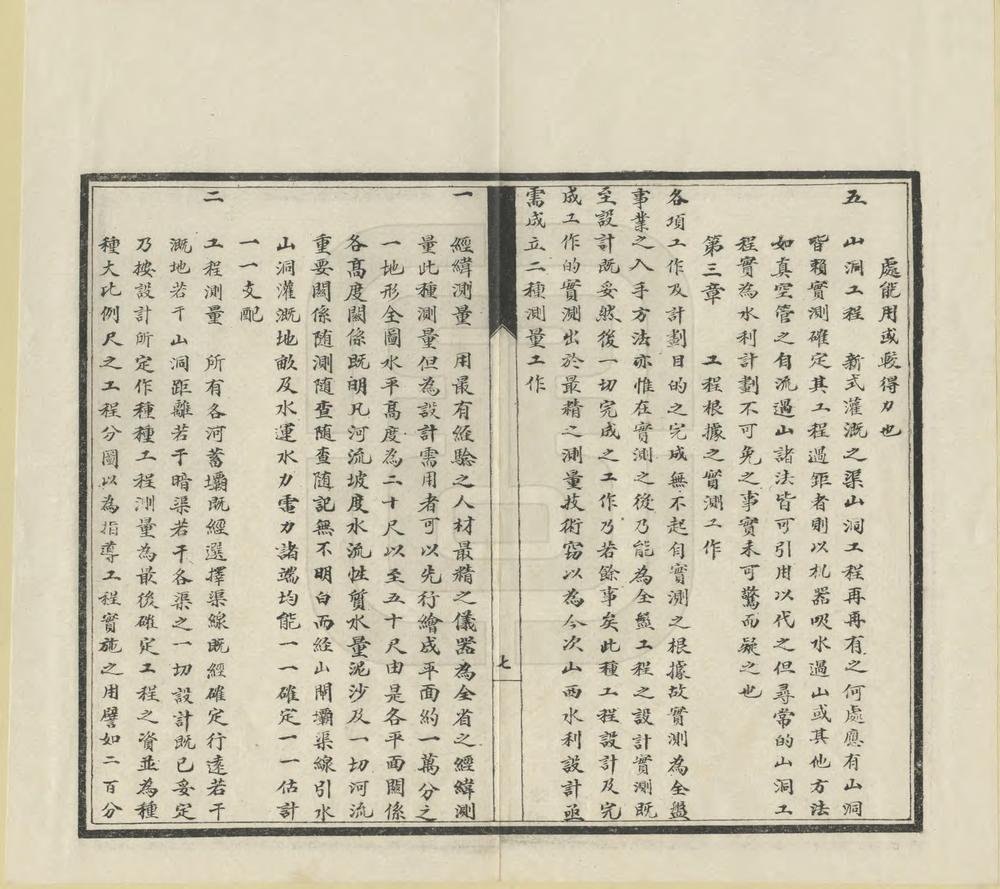 處能用或較得力也
五　山洞工程　新式灌溉之渠山洞工程再再有之何處應有山洞
皆賴實測確定其工程過鉅者則以机器吸水過山或其他方法
如真空管之自流過山諸法皆可引用以代之但尋常的山洞工
程實為水利計劃不可免之事實未可驚而疑之也
第三章　工程根據之實測工作
各項工作及計劃目的之完成無不起自實測之根據故實測為全盤
事業之入手方法亦惟在實測之後乃能為全盤工程之設計實測既
至設計既妥然後一切完成之工作乃若餘事矣此種工程設計及完
成工作的實測出於最精之測量技術竊以為今次山西水利設計亟
需成立二種測量工作
七
一　經緯測量　用最有經驗之人材最精之儀器為全省之經緯測
量此種測量但為設計需用者可以先行繪成平面約一萬分之
一地形全圖水平高度為二十尺以至五十尺由是各平面關係
各高度關係既明凡河流坡度水流性質水量泥沙及一切河流
重要關係隨測隨查隨查隨記無不明白而經山閘壩渠線引水
山洞灌溉地畝及水運水力電力諸端均能一一確定一一估計
一一支配
二　工程測量　所有各河蓄壩既經選擇渠線既經確定行遠若干
溉地若干山洞距離若干暗渠若干各渠之一切設計既已妥定
乃按設計所定作種種工程測量為最後確定工程之資並為種
種大比例尺之工程分圖以為指導工程實施之用譬如二百分